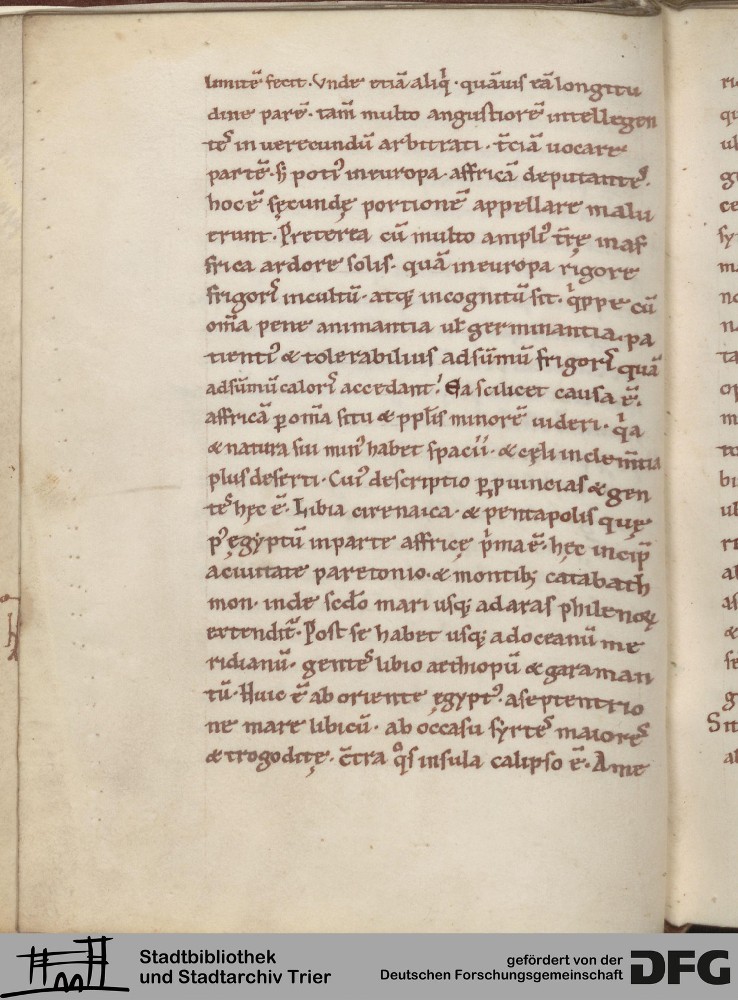 limitē fecit. Vnde etiā aliq̇. quāuis eā longitu
dine parē. tam̄ multo angustiorē intellegen
tes̄ inuerecundū arbitrati. t̄ciā uocare
partē. ꝫ poti᷒ ineuropa. affricā deputantes̄.
hoc ē secundę portionē appellare malu
erunt. Pręterea cū multo ampli᷒ t̄rę inaf
frica ardore solis. quā ineuropa rigore
frigor̄ incultū. atqꝫ incognitū sit. q̇ppe cū
om̄a pene animantia ul̄ germinantia. pa
tienti᷒ & tolerabilius adsūmū frigor̄ quā
adsūmū calor̄ accedant. Ea scilicet causa ē.
affricā ꝑ om̄a situ & pp̄lis minorē uideri. q̇a
& natura sui min᷒ habet spacii. & cęli inclem̄tia
plus deserti. Cui᷒ descriptio ꝑ ꝓuincias & gen
tes̄ hęc ē. Libia cirenaica. & pentapolis quę
p᷒ ęgyptū inparte affricę p̄ma ē. hęc incip̄
aciuitate paretonio. & montibꝫ catabath
mon. inde sedo mari usqꝫ adaras philenoꝝ
extendit̄. Post se habet usqꝫ adoceanū me
ridianū. gentes̄ libio aethiopū & garaman
tū. Huic ē ab oriente ęgypt᷒. aseptentrio
ne mare libicū. ab occasu syrtes̄ maiores̄
& trogoditę. c̄tra q̊s insula calipso ē. Ame
Stadtbibliothek
und Stadtarchiv Trier
gefördert von der
Deutschen Forschungsgemeinschaft
DFG